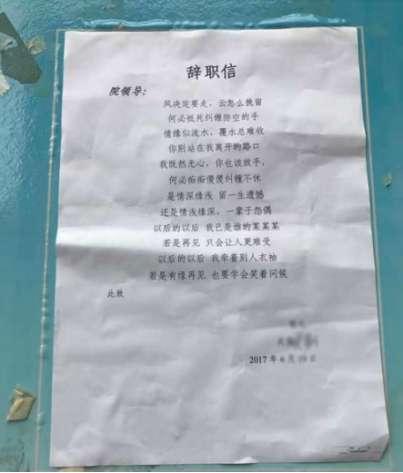 辞职信
院领导：
风决定要走，云怎么挽留
何必抵死纠缠放空的手
情缘似流水，覆水总难收
你别站在我离开的路口
我既然无心，你也该放手，
何必痴痴傻傻纠缠不休
是情深缘浅 留一生遗憾
还是情浅缘深，一辈子怨偶
以后的以后 我已是谁的某某某
若是再见 只会让人更难受
以后的以后 我牵着别人衣袖
若是有缘再见 也要学会笑着问候
此致
2017年6月